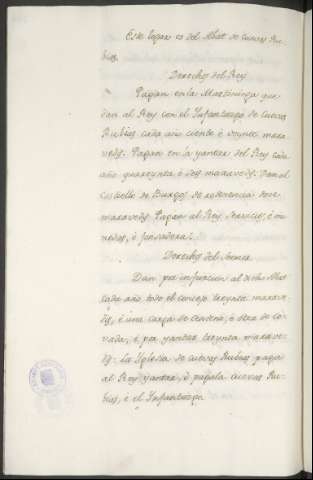 Este logar es del Abat de cuevas Ru-
bias.
Derechos del Rey
Pagan en la Martiniega que
dan al Rey con el Infantazgo de Cuevas
Rubias cada año ciento é veynte mara-
vedis. Pagan en la yantar del Rey cada
año quareynta é seis maravedis. Dan al
Castiello de Burgos de retenencia doce
maravedis Pagan al Rey servicios, é mo-
nedas, é fonsadera.
Derechos del Sennor
Dan por infurcion al dicho Abat
cada año todo el concejo treynta marave-
dis, é una carga de centeno, é otra de ce-
vada, é por yantar treynta maravedis
- La Yglesia de cuevas Rubias paga
al Rey yantar, é pagala cuevas Ru-
bias, é el Infantazgo.